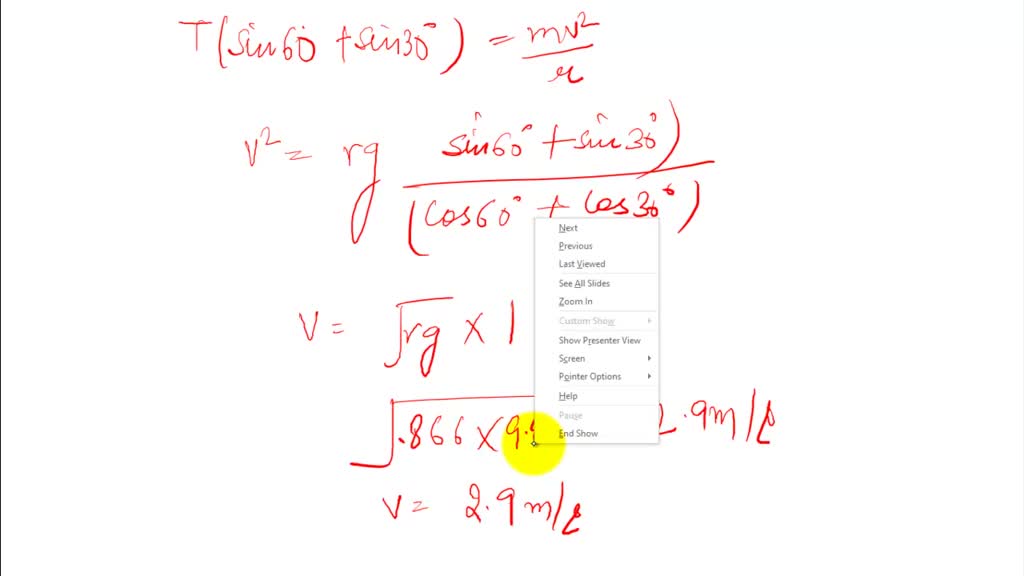 T(sin60° + sin30°) = mv²/r
v² = rg sin60° + sin30°) / (cos60° + cos30°)
v = √rg × 1
√.866 × 9. 2.9m/s
v = 2.9m/s
Next
Previous
Last Viewed
See All Slides
Zoom In
Custom Show
Show Presenter View
Screen
Pointer Options
Help
Pause
End Show